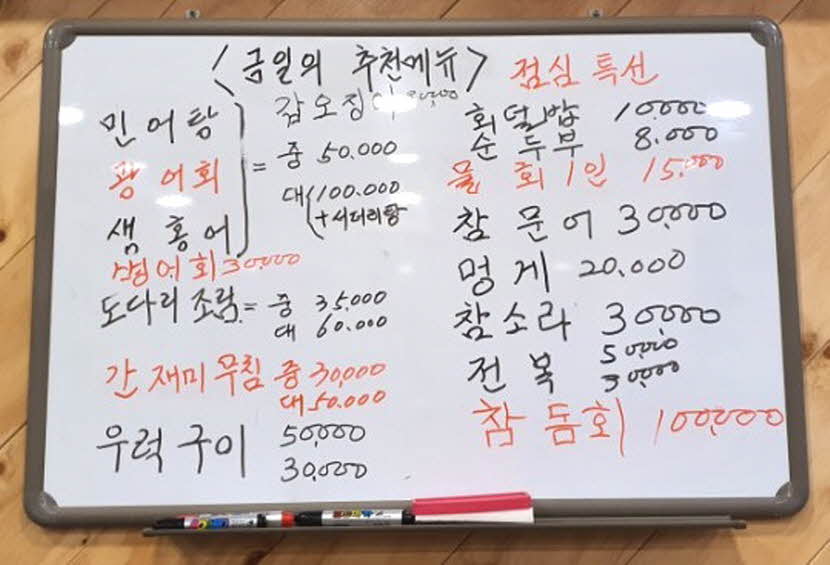 <금일의 추천메뉴>
갑오징어
민어탕
광어회
생홍어
= 중 50.000
대 100.000
+서대리탕
병어회 30.000
도다리조림 = 중 35,000
대 60.000
간재미무침 중 30,000
대 50.000
우럭구이 50,000
30,000
점심 특선
회덮밥 10.000
순두부 8.000
물회 1인 15.000
참문어 30,000
멍게 20.000
참소라 30,000
전복 50,000
30,000
참돔회 100,000